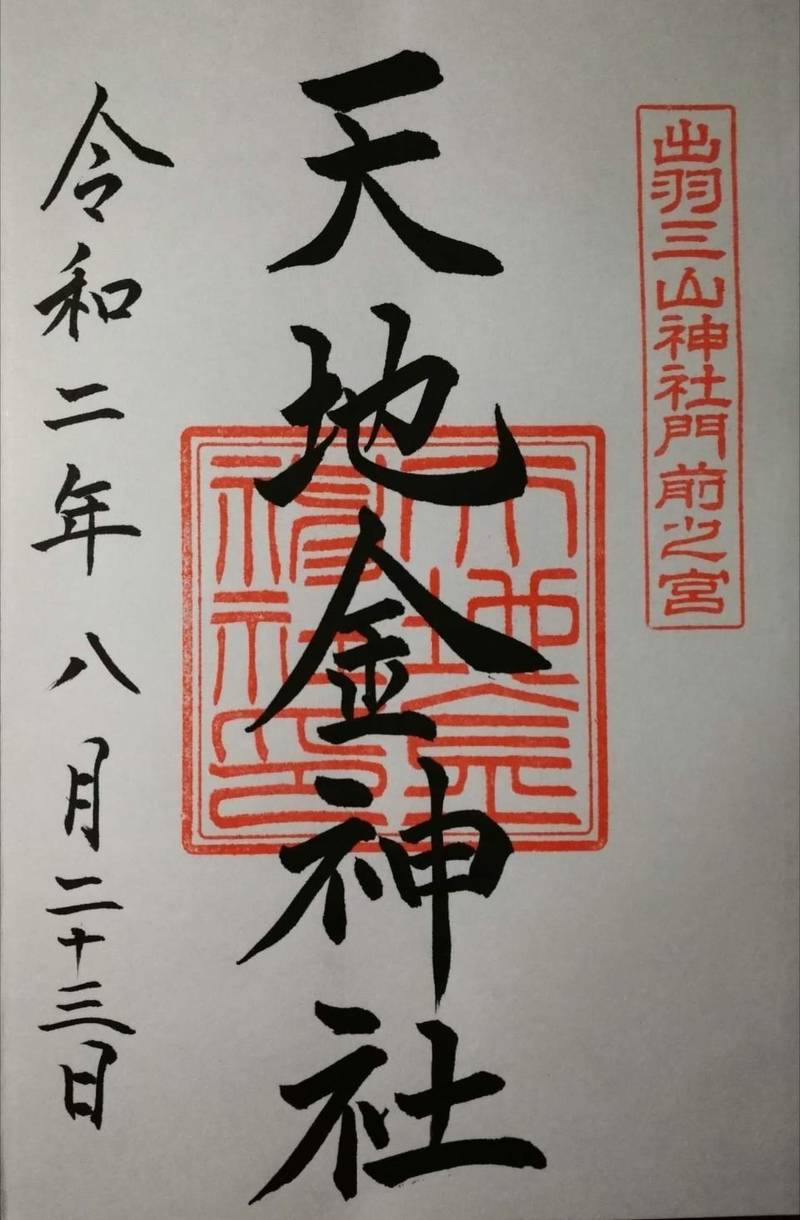 出羽三山神社門前之宮
天地金神社
天地金神社印
令和二年八月二十三日